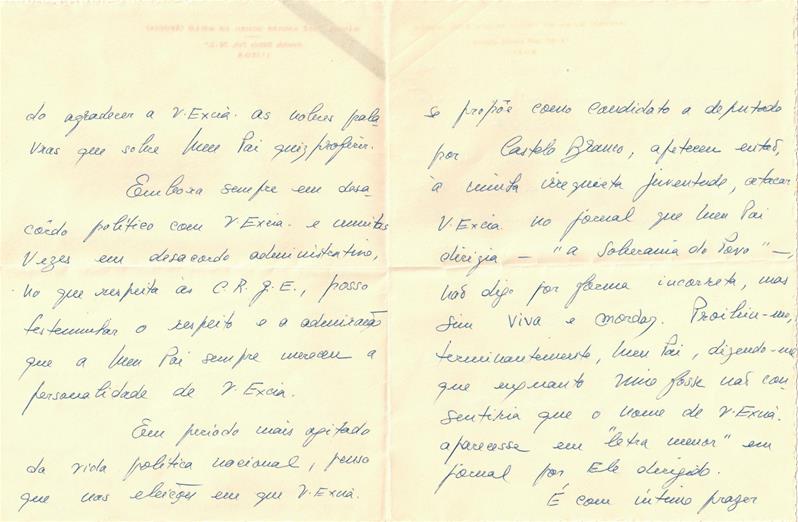 do agradecer a V. Excia. as nobres pala-
vras que sobre Meu Pai quiz proferir.
Embora sempre em desa-
côrdo político com V. Excia. e muitas
vezes em desacordo administrativo,
no que respeita às C. R. G. E., posso
testemunhar o respeito e a admiração
que a Meu Pai sempre mereceu a
personalidade de V. Excia.
Em período mais agitado
da vida política nacional, penso
que nas eleições em que V. Excia.
se propõe como candidato a deputado
por Castelo Branco, apeteceu então,
à minha irrequieta juventude, atacar
V. Excia. no jornal que Meu Pai
dirigia — "a Soberania do Povo" —,
não digo por forma incorreta, mas
sim viva e mordaz. Proibiu-mo,
terminantemente, Meu Pai, dizendo-me
que enquanto vivo fosse não con-
sentiria que o nome de V. Excia.
aparecesse em "letra menor" em
jornal por Ele dirigido.
É com íntimo prazer